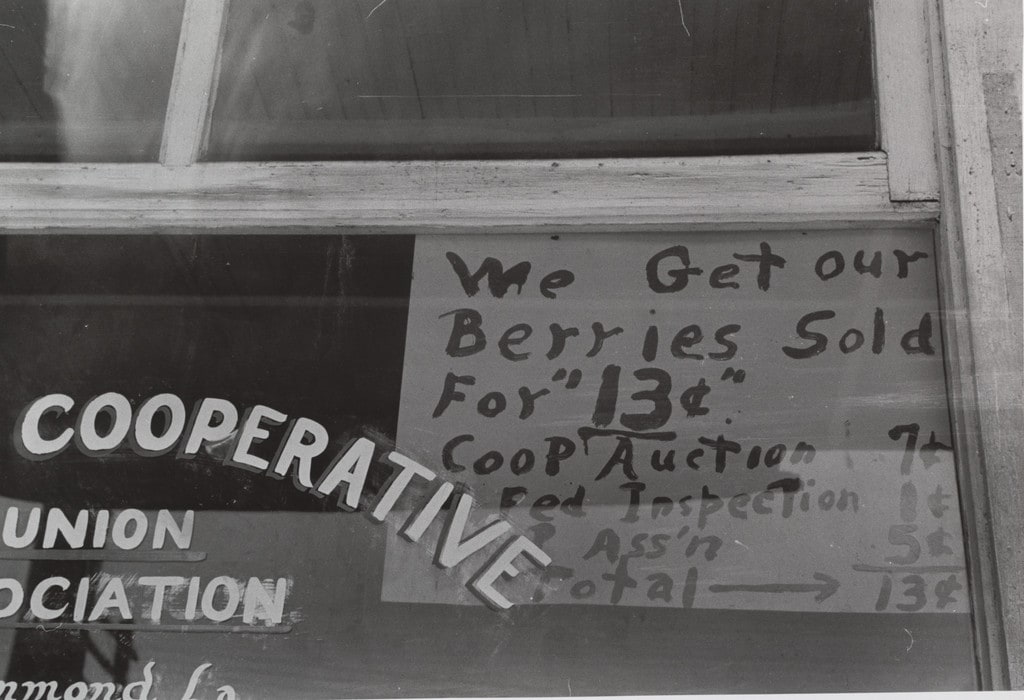 We Get our
Berries Sold
For "13¢"
CooP Auction 7¢
Fed Inspection 1¢
P Ass'n 5¢
Total → 13¢
COOPERATIVE
UNION
OCIATION
mmond La